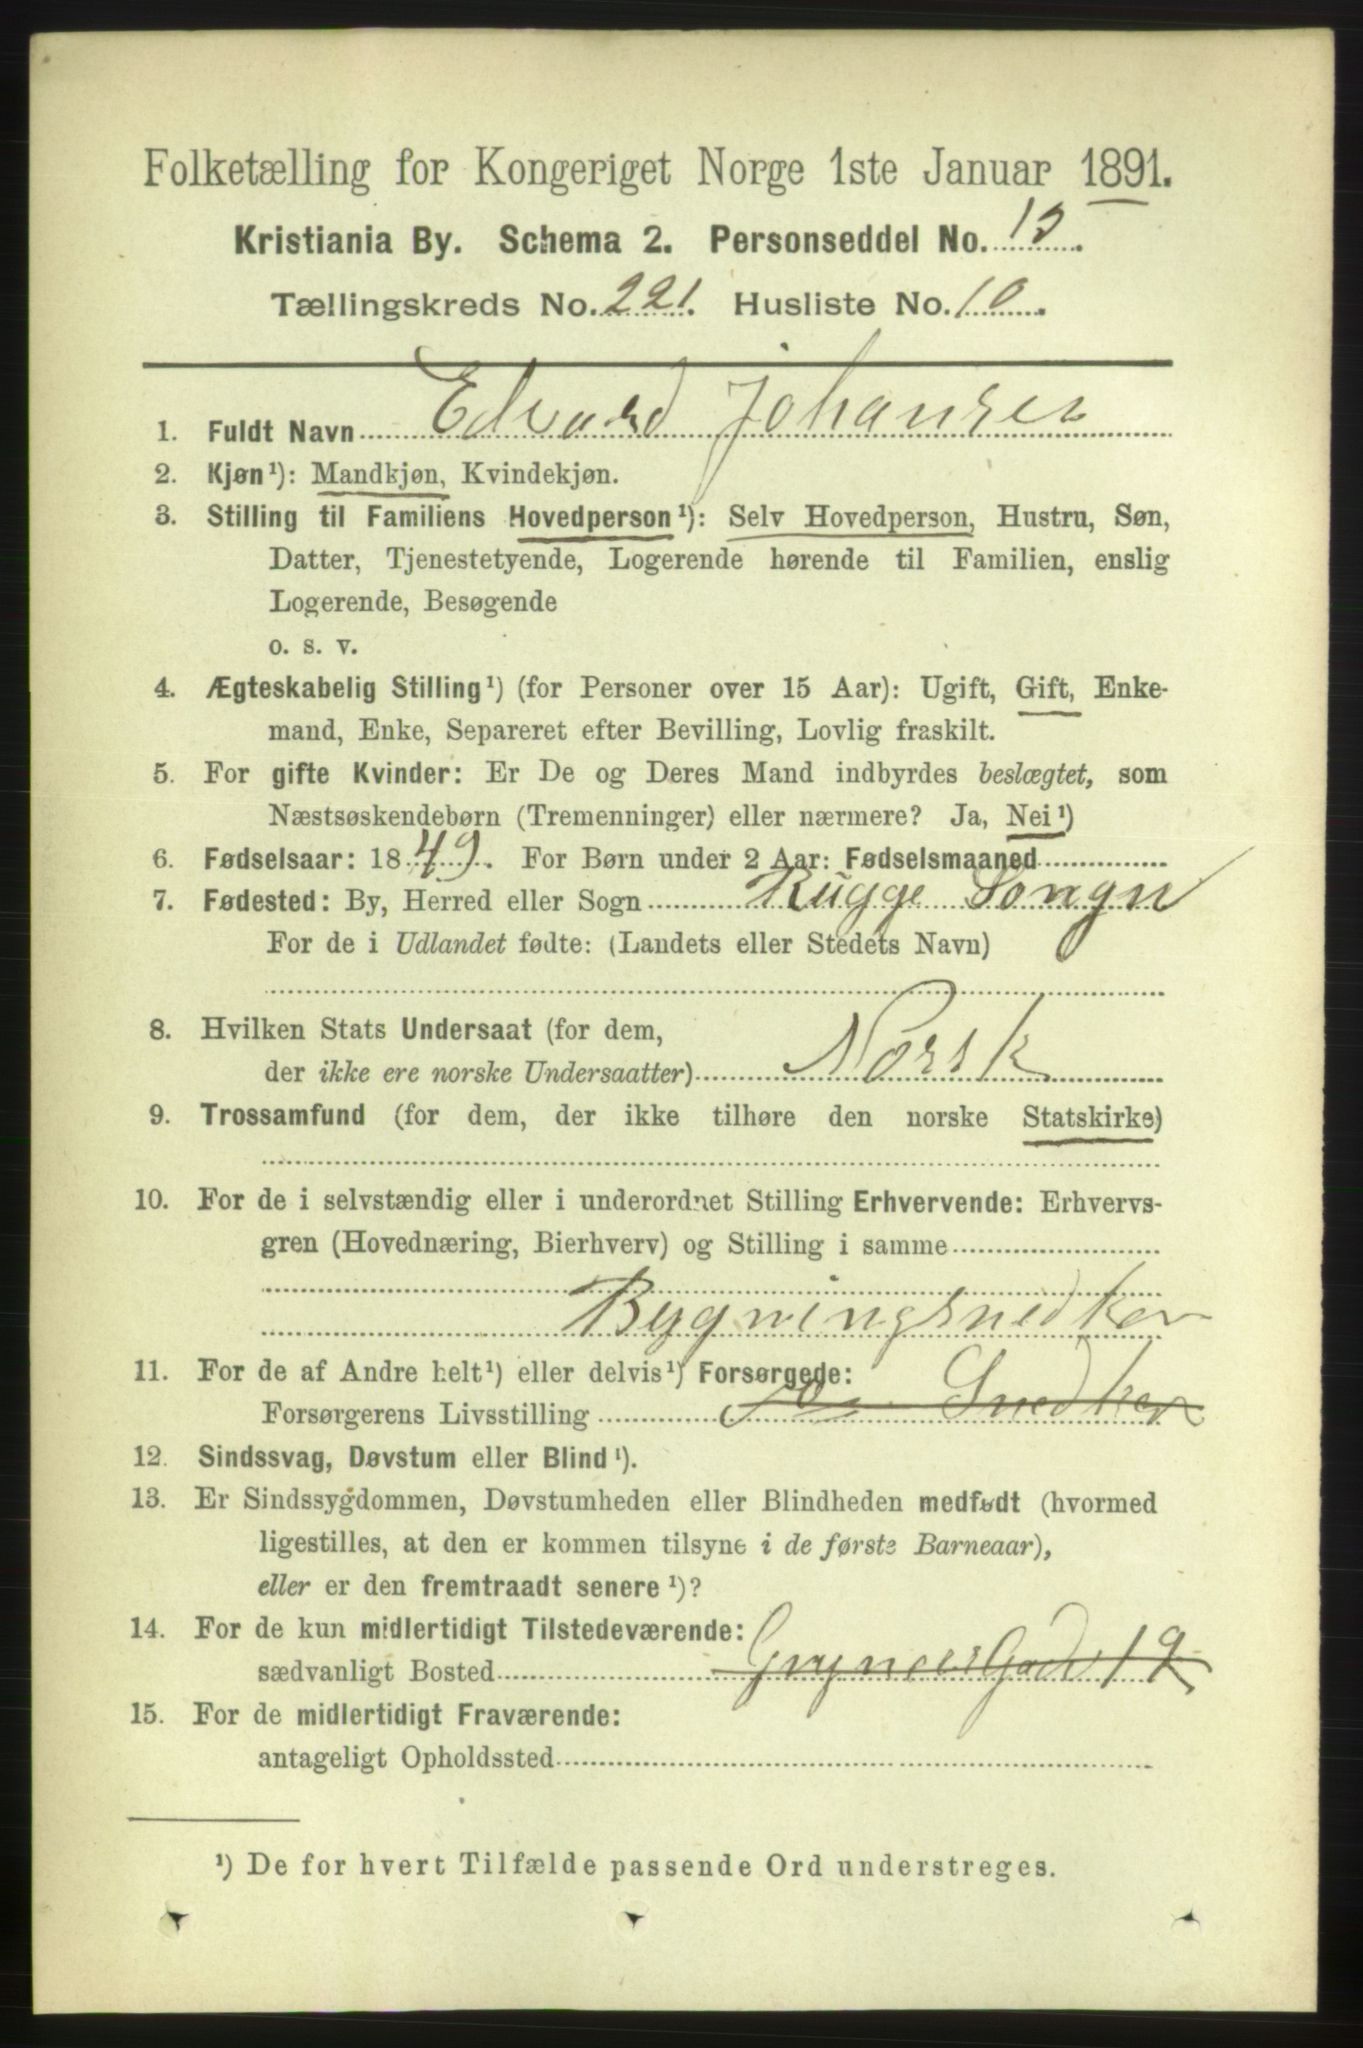 Folketælling for Kongeriget Norge 1ste Januar 1891.
Kristiania By. Schema 2. Personseddel No. 13.
Tællingskreds No. 221. Husliste No. 10.
1. Fuldt Navn Edvard Johansen
2. Kjøn¹): Mandkjøn, Kvindekjøn.
3. Stilling til Familiens Hovedperson¹): Selv Hovedperson, Hustru, Søn,
Datter, Tjenestetyende, Logerende hørende til Familien, enslig
Logerende, Besøgende
o. s. v.
4. Ægteskabelig Stilling¹) (for Personer over 15 Aar): Ugift, Gift, Enke-
mand, Enke, Separeret efter Bevilling, Lovlig fraskilt.
5. For gifte Kvinder: Er De og Deres Mand indbyrdes beslægtet, som
Næstsøskendebørn (Tremenninger) eller nærmere? Ja, Nei¹)
6. Fødselsaar: 1849. For Børn under 2 Aar: Fødselsmaaned
7. Fødested: By, Herred eller Sogn Rygge Songn
For de i Udlandet fødte: (Landets eller Stedets Navn)
8. Hvilken Stats Undersaat (for dem,
der ikke ere norske Undersaatter) Norsk
9. Trossamfund (for dem, der ikke tilhøre den norske Statskirke)
10. For de i selvstændig eller i underordnet Stilling Erhvervende: Erhvervs-
gren (Hovednæring, Bierhverv) og Stilling i samme
Bygningsnedker
11. For de af Andre helt¹) eller delvis¹) Forsørgede:
Forsørgerens Livsstilling Snedker
12. Sindssvag, Døvstum eller Blind¹).
13. Er Sindssygdommen, Døvstumheden eller Blindheden medfødt (hvormed
ligestilles, at den er kommen tilsyne i de første Barneaar),
eller er den fremtraadt senere¹)?
14. For de kun midlertidigt Tilstedeværende:
sædvanligt Bosted 19
15. For de midlertidigt Fraværende:
antageligt Opholdssted
¹) De for hvert Tilfælde passende Ord understreges.